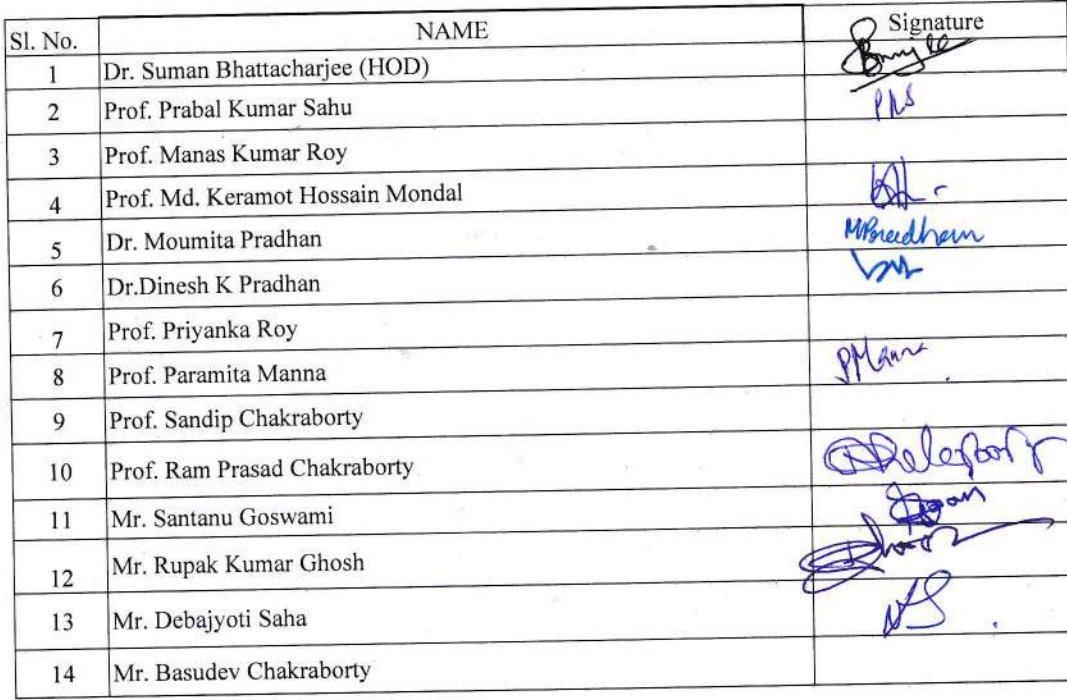 Sl. No. NAME Signature
1 Dr. Suman Bhattacharjee (HOD)
2 Prof. Prabal Kumar Sahu PKS
3 Prof. Manas Kumar Roy
4 Prof. Md. Keramot Hossain Mondal
5 Dr. Moumita Pradhan MPradhan
6 Dr.Dinesh K Pradhan
7 Prof. Priyanka Roy
8 Prof. Paramita Manna PManna
9 Prof. Sandip Chakraborty
10 Prof. Ram Prasad Chakraborty
11 Mr. Santanu Goswami
12 Mr. Rupak Kumar Ghosh
13 Mr. Debajyoti Saha
14 Mr. Basudev Chakraborty